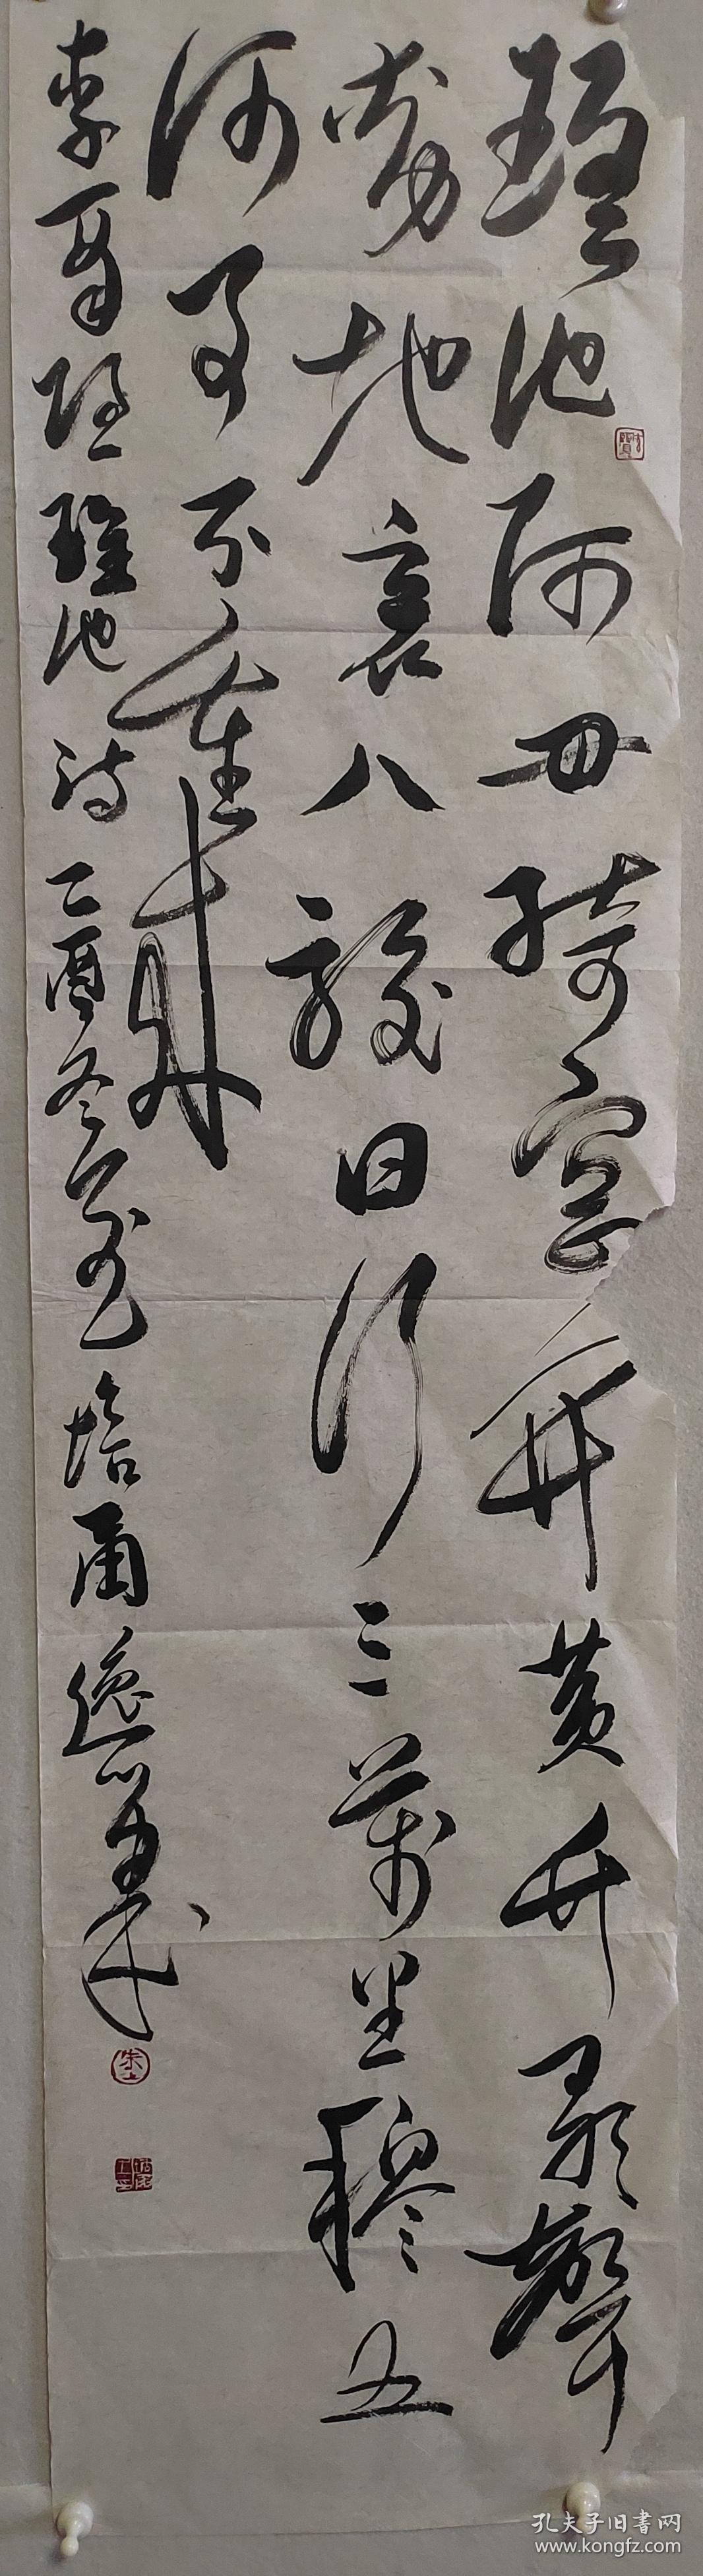 瑶池阿母绮窗开黄竹歌声
动地哀八骏日行三万里穆王
何事不重来
李商隐瑶池诗乙酉冬月培甫逸笔
孔夫子旧書网
www.kongfz.com